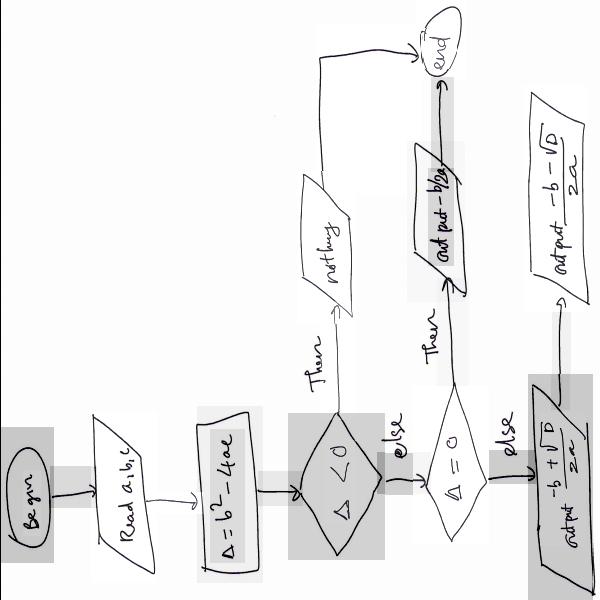 Begin
Read a,b,c
Δ = b² - 4ac
Δ < 0
Then
nothing
else
Δ = 0
Then
output -b/2a
end
else
output -b + √D / 2a
output -b - √D / 2a